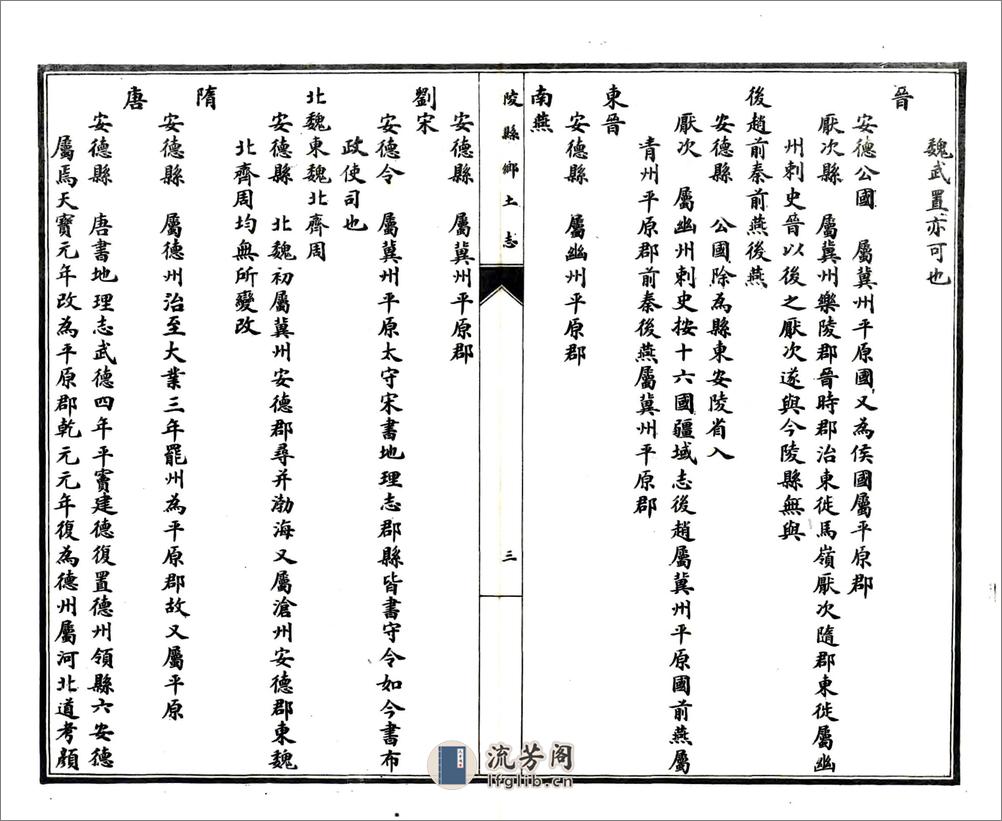 魏武置亦可也
晉
安德公國　屬冀州平原國又為侯國屬平原郡
厭次縣　屬冀州樂陵郡晉時郡治東徙馬嶺厭次隨郡東徙屬幽
州刺史晉以後之厭次遂與今陵縣無與
後趙前秦前燕後燕
安德縣　公國除為縣東安陵省入
厭次　屬幽州刺史按十六國疆域志後趙屬冀州平原國前燕屬
青州平原郡前秦後燕屬冀州平原郡
東晉
安德縣　屬幽州平原郡
南燕
陵縣鄉土志
三
安德縣　屬冀州平原郡
劉宋
安德令　屬冀州平原太守宋書地理志郡縣皆書守令如今書布
政使司也
北魏東魏北齊周
安德縣　北魏初屬冀州安德郡尋并渤海又屬滄州安德郡東魏
北齊周均無所變改
隋
安德縣　屬德州治至大業三年罷州為平原郡故又屬平原
唐
安德縣　唐書地理志武德四年平竇建德復置德州領縣六安德
屬焉天寶元年改為平原郡乾元元年復為德州屬河北道考顏
流芳阁
lfglib.cn